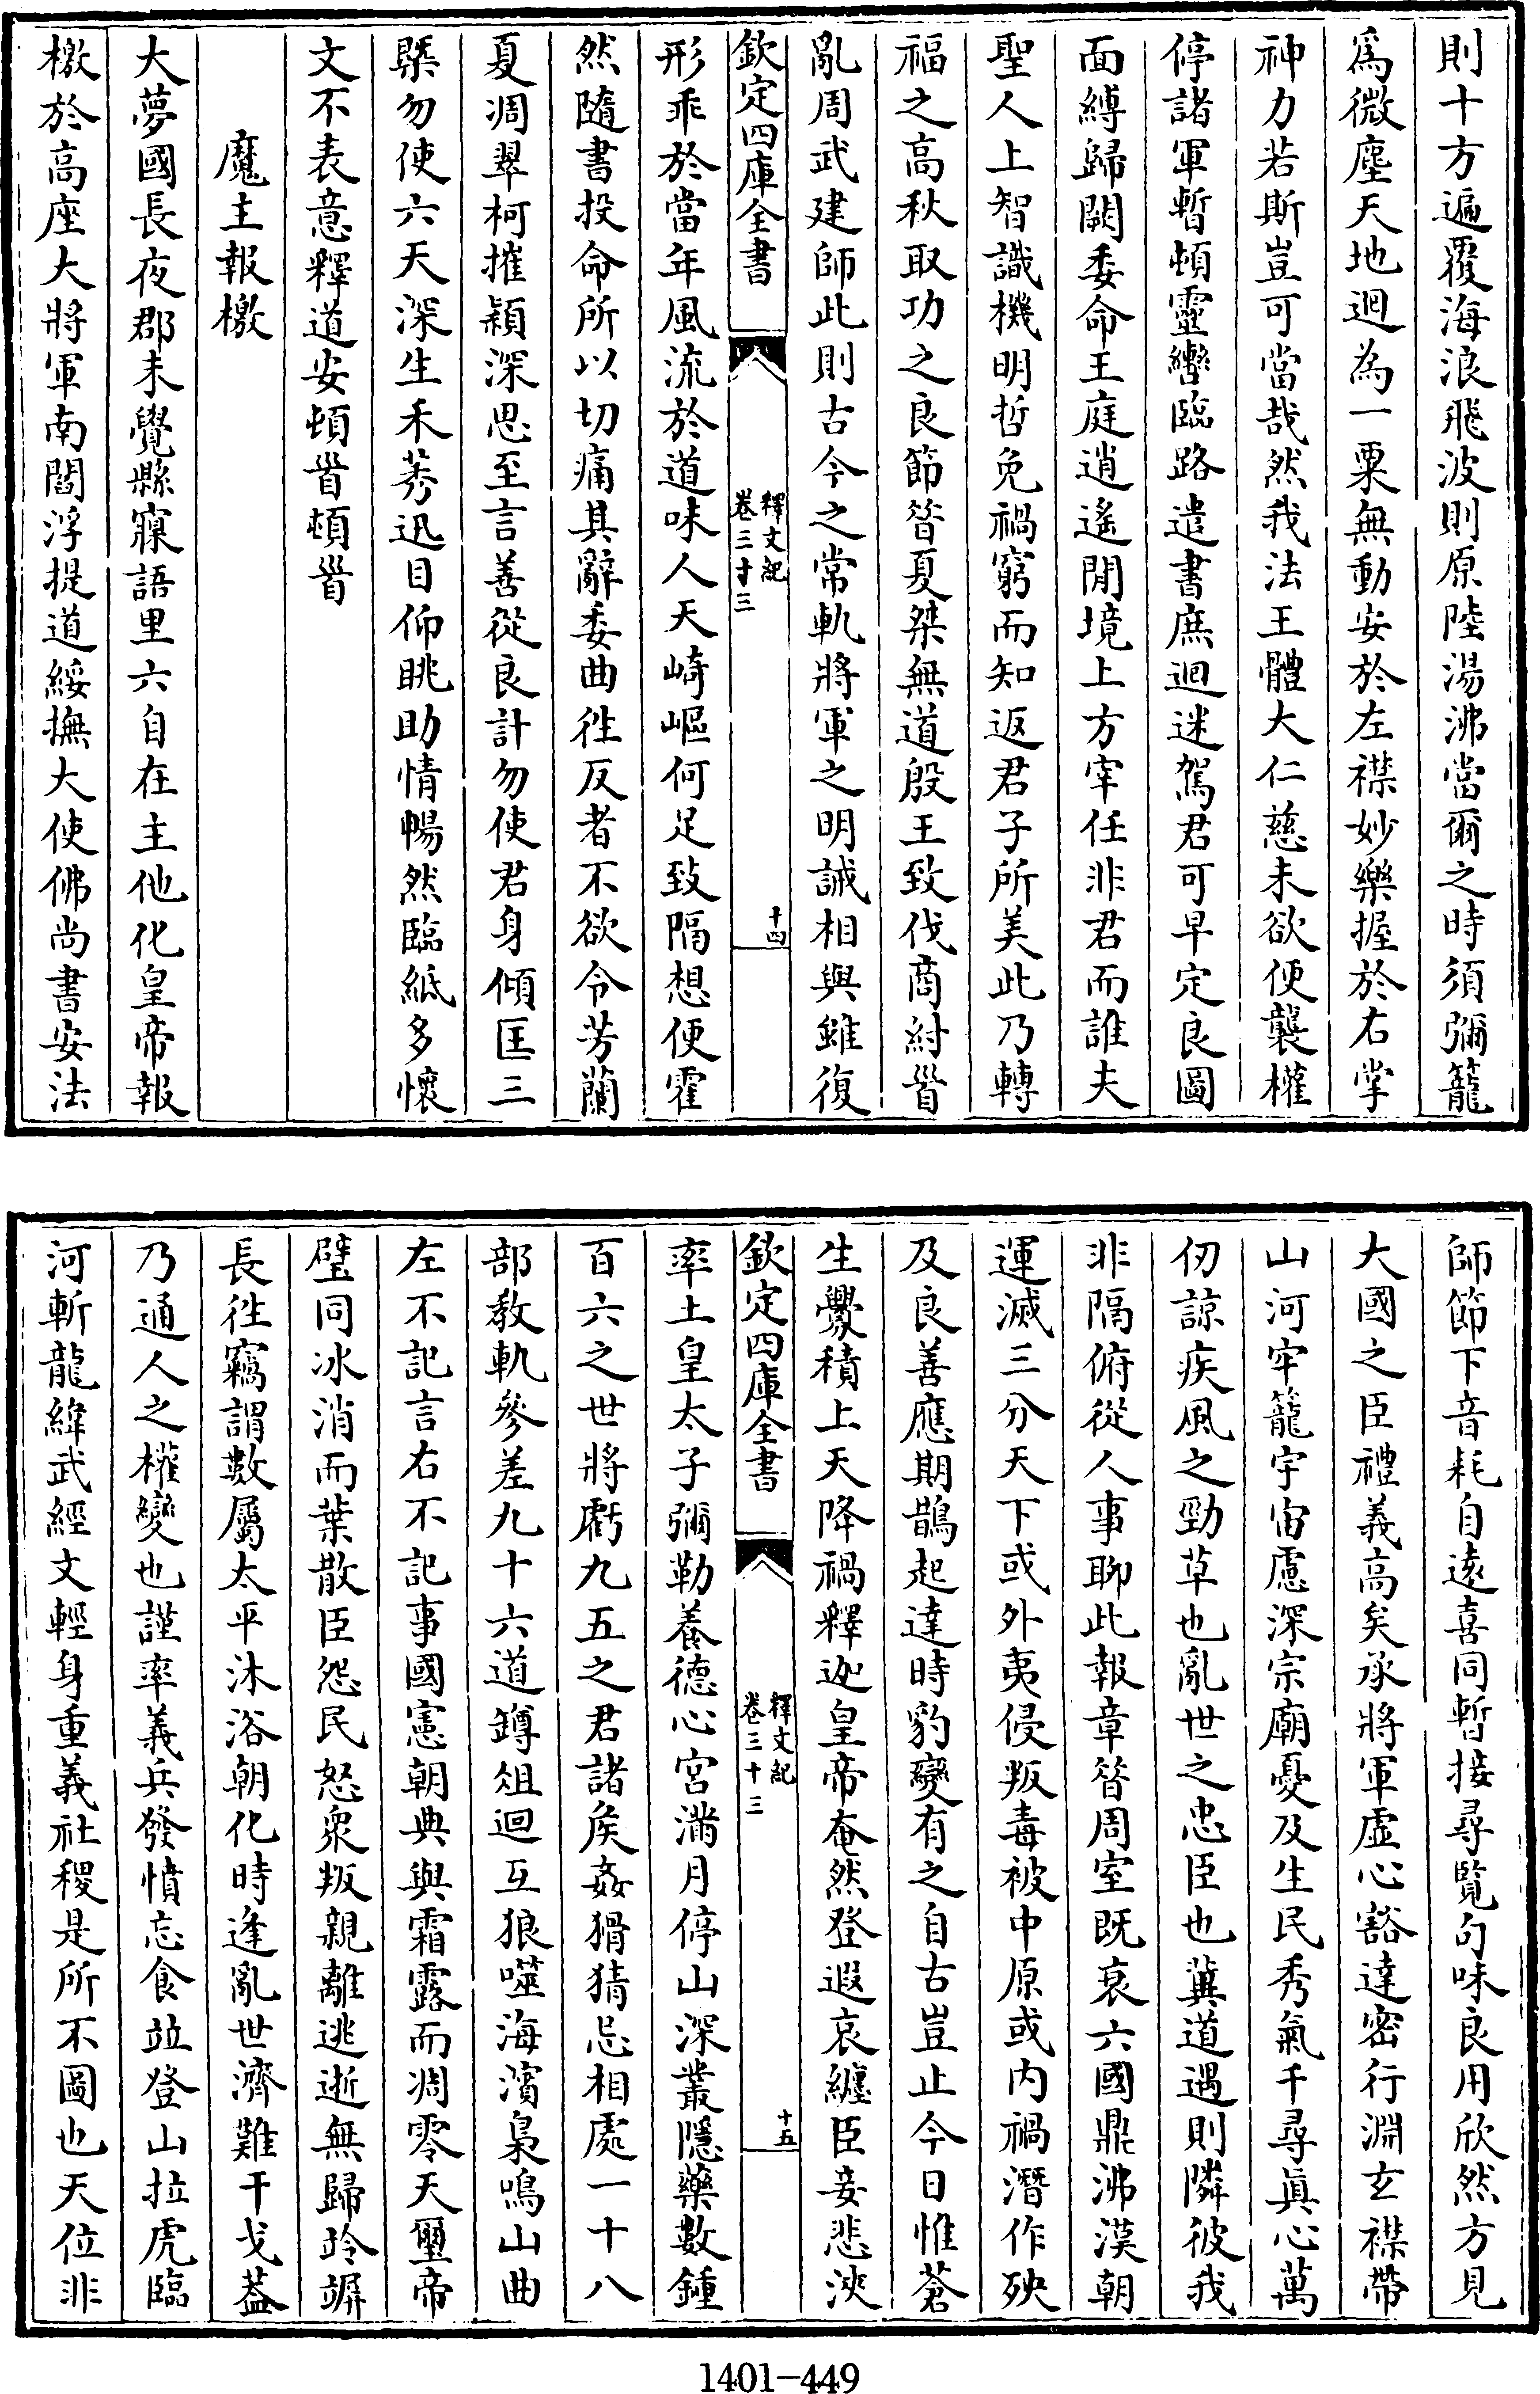 則十方遍覆海浪飛波則原陸湯沸當爾之時須彌籠
爲微塵天地迴為一粟無動安於左襟妙樂握於右掌
神力若斯豈可當哉然我法王體大仁慈未欲便襲權
停諸軍暫頓靈轡臨路遣書庶迴迷駕君可早定良圖
面縛歸闕委命王庭逍遙閒境上方宰任非君而誰夫
聖人上智識機明哲免禍窮而知返君子所美此乃轉
福之高秋取功之良節昝夏桀無道殷王致伐商紂首
亂周武建師此則古今之常軌將軍之明誡相與雖復
欽定四庫全書
釋文紀
卷三十三
十四
形乖於當年風流於道味人天崎嶇何足致隔想便霍
然隨書投命所以切痛其辭委曲徃反者不欲令芳蘭
夏凋翠柯摧穎深思至言善從良計勿使君身傾匡三
槩勿使六天深生禾莠迅目仰眺助情暢然臨紙多懷
文不表意釋道安頓首頓首
魔主報檄
大夢國長夜郡未覺縣寱語里六自在主他化皇帝報
檄於高座大將軍南閻浮提道綏撫大使佛尚書安法
師節下音耗自遠喜同暫接尋覽句味良用欣然方見
大國之臣禮義高矣承將軍虛心豁達密行淵玄襟帶
山河牢籠宇宙慮深宗廟憂及生民秀氣千尋真心萬
仞諒疾風之勁草也亂世之忠臣也冀道遇則隣彼我
非隔俯從人事聊此報章昝周室既衰六國鼎沸漢朝
運滅三分天下或外夷侵叛毒被中原或内禍潛作殃
及良善應期鵲起達時豹變有之自古豈止今日惟蒼
生釁積上天降禍釋迦皇帝奄然登遐哀纏臣妾悲浹
欽定四庫全書
釋文紀
卷三十三
十五
率土皇太子彌勒養德心宮滿月停山深叢隱藥數鍾
百六之世將虧九五之君諸侯姦猾猜忌相處一十八
部教軌參差九十六道罇俎迴互狼噬海濱梟鳴山曲
左不記言右不記事國憲朝典與霜露而凋零天璽帝
璧同冰消而葉散臣怨民怒衆叛親離逃逝無歸竛竮
長徃竊謂數屬太平沐浴朝化時逢亂世濟難干戈蓋
乃通人之權變也謹率義兵發憤忘食並登山拉虎臨
河斬龍緯武經文輕身重義社稷是所不圖也天位非
1401-449